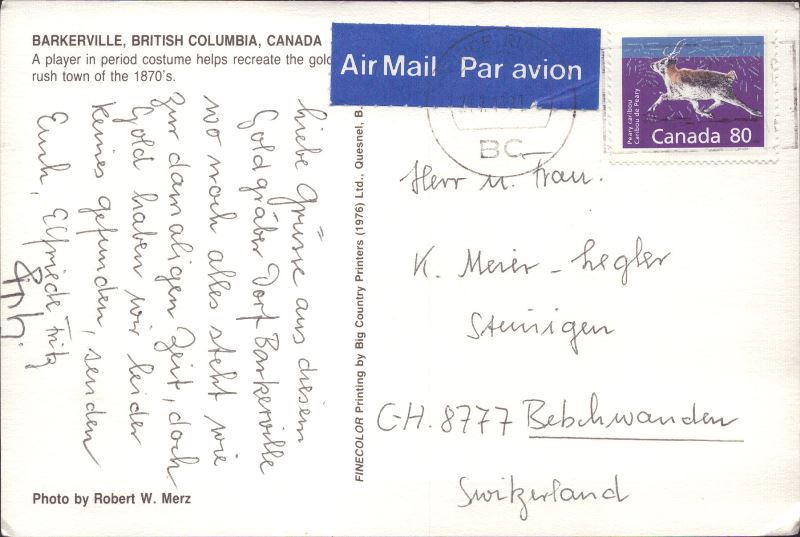 BARKERVILLE, BRITISH COLUMBIA, CANADA
A player in period costume helps recreate the gold
rush town of the 1870's.
Air Mail Par avion
Peary caribou
Caribou de Peary
Canada 80
BC
liebe Grüsse aus diesem
Goldgräber Dorf Barkerville
wo noch alles steht wie
zur damaligen Zeit, doch
Gold haben wir leider
keines gefunden, senden
Euch, Elfriede Fritz
FINECOLOR Printing by Big Country Printers (1976) Ltd., Quesnel, B.
Herr u. Frau.
K. Meier-Legler
Steinigen
CH. 8777 Betschwanden
Switzerland
Photo by Robert W. Merz